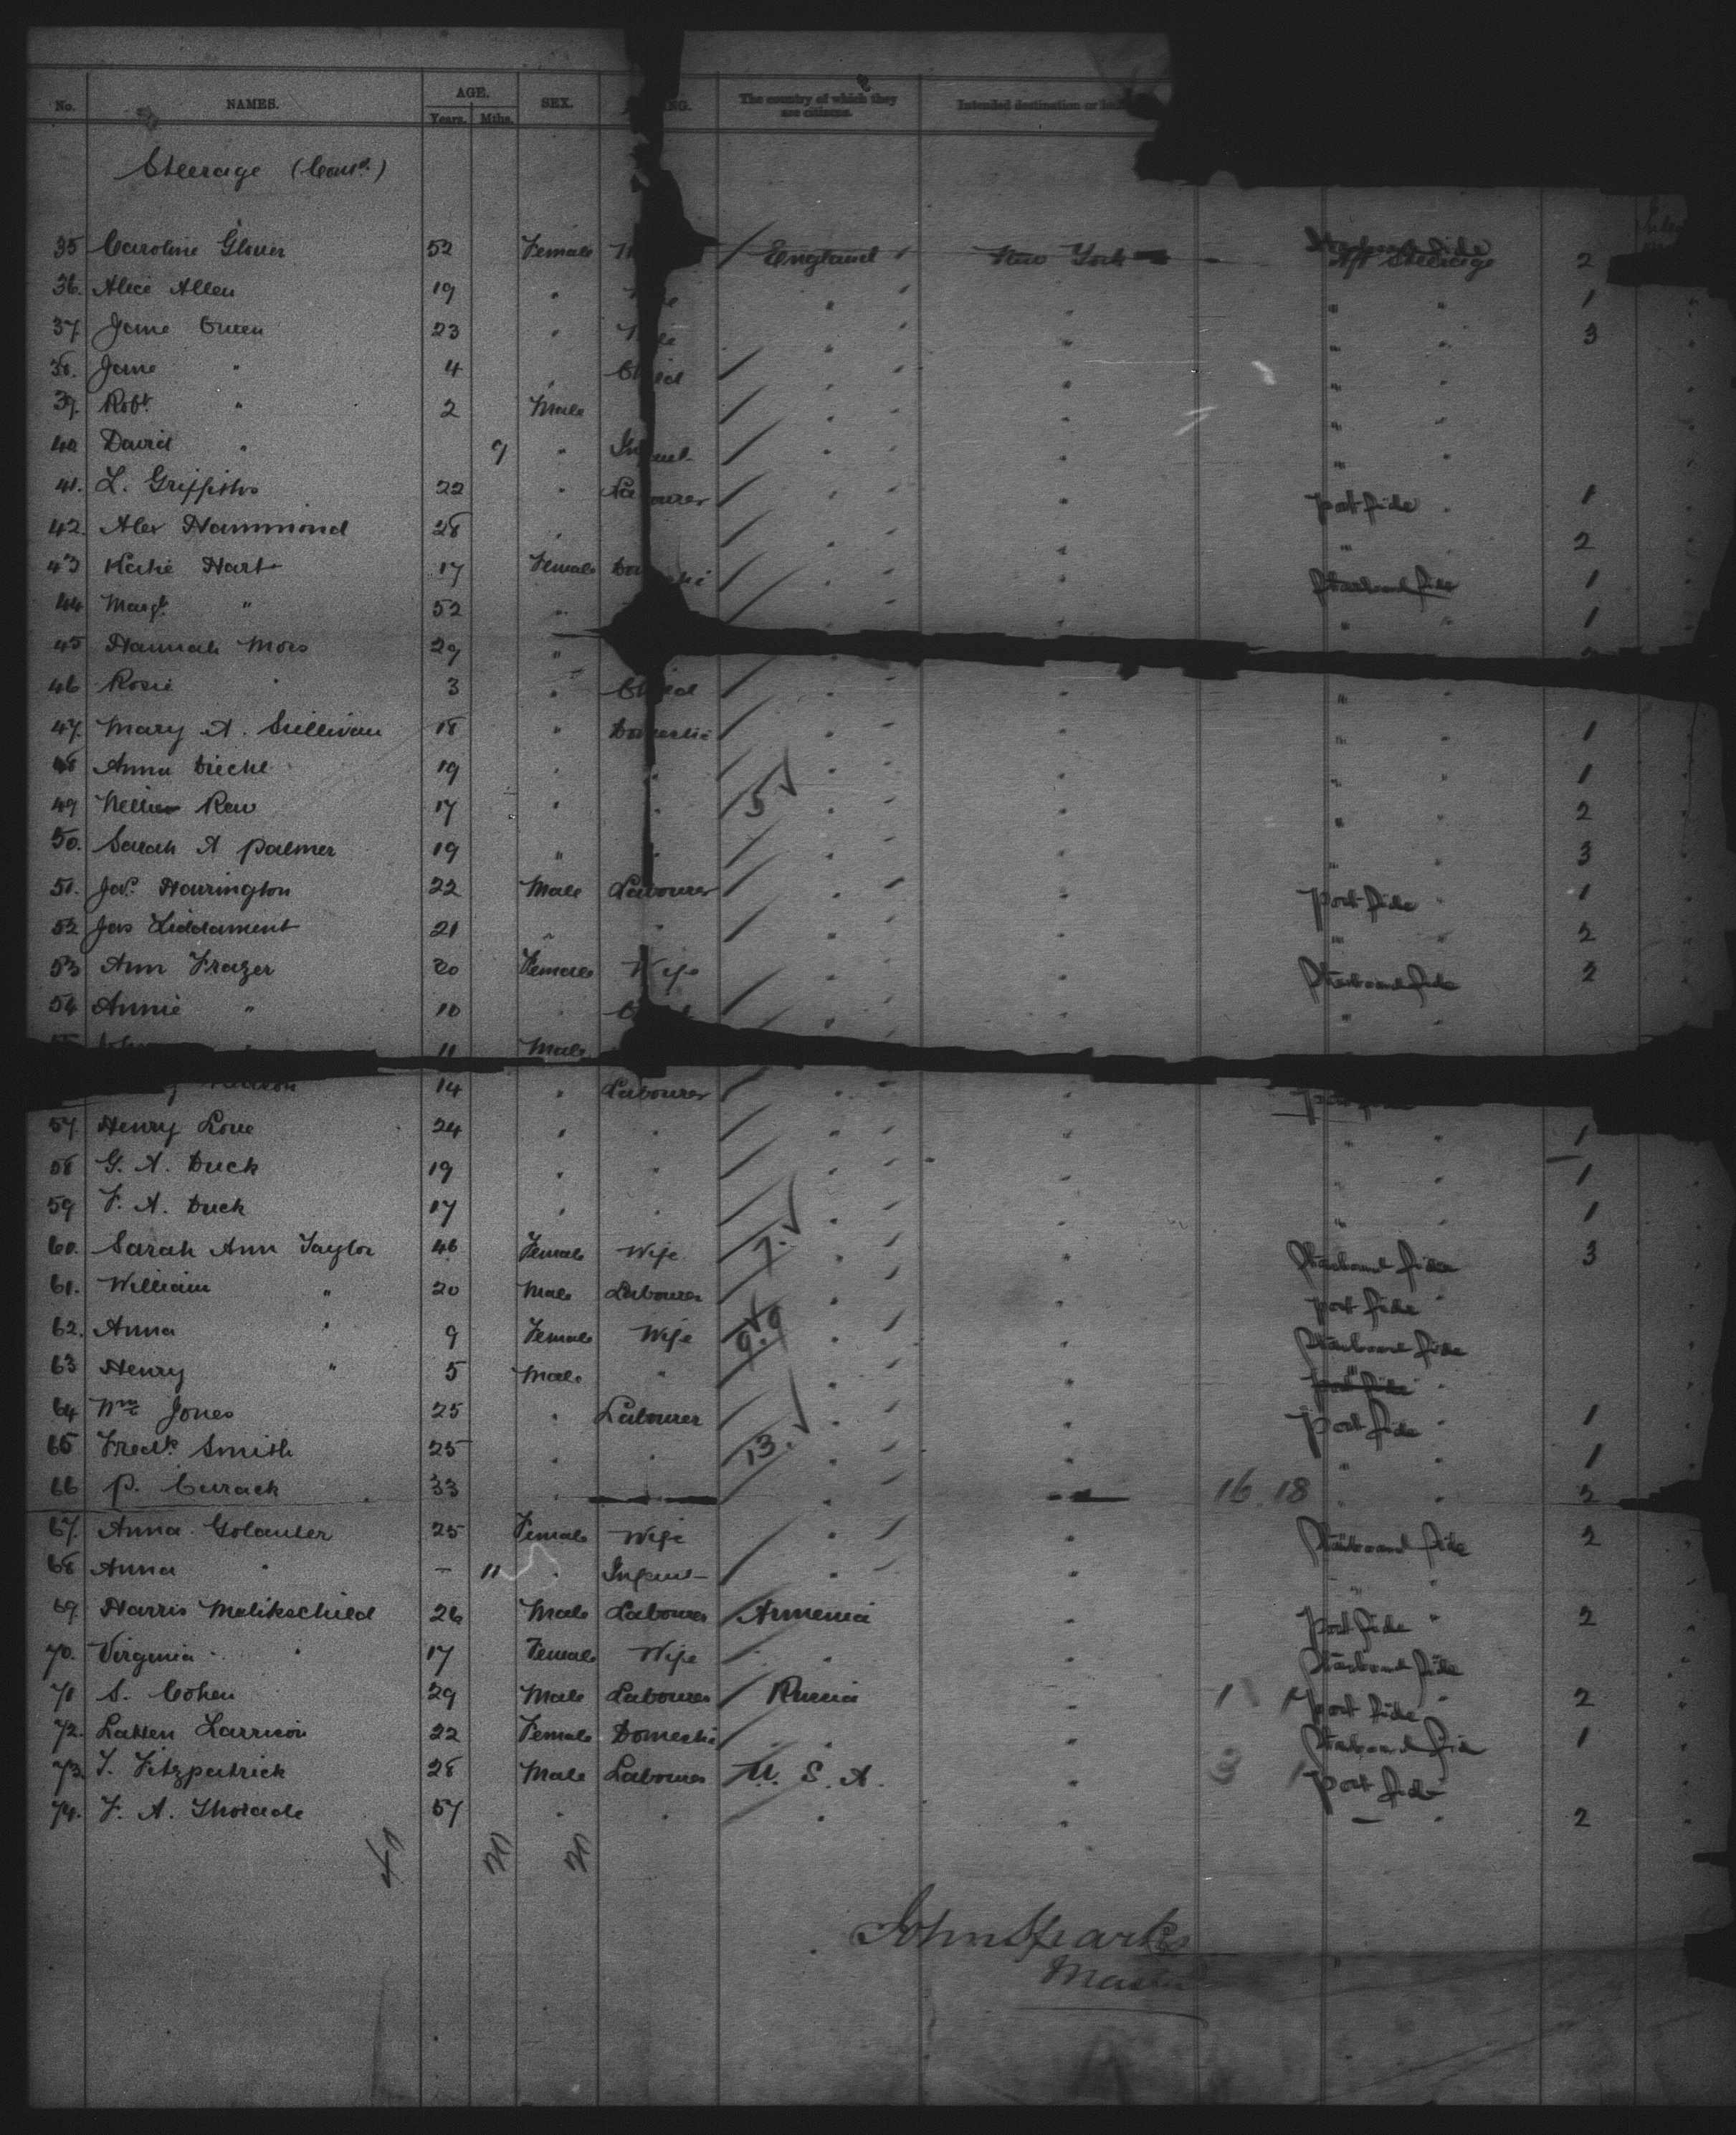 No. NAMES. AGE. Years. Mths. SEX. The country of which they are citizens. Intended destination or
Steerage (Cont.d)
35 Caroline Glover 52 Female England New York Starboard side Aft Steerage 2
36. Alice Allen 19 " " " " " 1
37. Jane Green 23 " " " " " 3
38. Jane " 4 " Child " " "
39. Robt. " 2 Male " " "
40 David " 9 " Infant " " " "
41. L. Griffiths 22 " Labourer " " Port side " 1
42. Alex Hammond 28 " " " " 2
43 Katie Hart 17 Female Domestic " " Starboard side 1
44 Margt. " 52 " " " " 1
45 Hannah Mors 29 " "
46 Rosie " 3 " Child " " "
47. Mary A. Sullivan 18 " Domestic " " " 1
48 Anna Diehl 19 " " " " " " 1
49 Nellie Rew 17 " " 5 " " " " 2
50. Sarah A Palmer 19 " " " " " " 3
51. Jas. Harrington 22 Male Labourer " " Port side " 1
52 Jas Liddament 21 " " " " " " 2
53 Ann Frazer 30 Female Wife " " Starboard side 2
54 Annie " 10 " " " " "
11 Male
14 " Labourer " "
57. Henry Love 24 " " " " " " 1
58 G. A. Duck 19 " " " " " " 1
59 F. A. Duck 17 " " " " " " 1
60. Sarah Ann Taylor 46 Female Wife 7. " " Starboard side 3
61. William " 20 Male Labourer " " Port side "
62. Anna " 9 Female Wife 9.9 " " Starboard side
63 Henry " 5 Male " " " Port side "
64 Wm. Jones 25 " Labourer " " Port side 1
65 Fredk. Smith 25 " " 13. " " " " 1
66 P. Curack 33 " " " 16.18 " " 2
67. Anna Golanter 25 Female Wife " " Starboard side 2
68 Anna " - 11 " Infant " " " "
69. Harris Melikschild 26 Male Labourer Armenia " Port side " 2
70. Virginia " 17 Female Wife " " Starboard side
71 S. Cohen 29 Male Labourer Russia " 1 1 Port side " 2
72. Larrison 22 Female Domestic " " Starboard side 1
73. T. Fitzpatrick 28 Male Labourer U. S. A. " 3 1 Port side
74. F. A. Thorade 57 " " " " " 2
40 20 20
John Sparks
Master